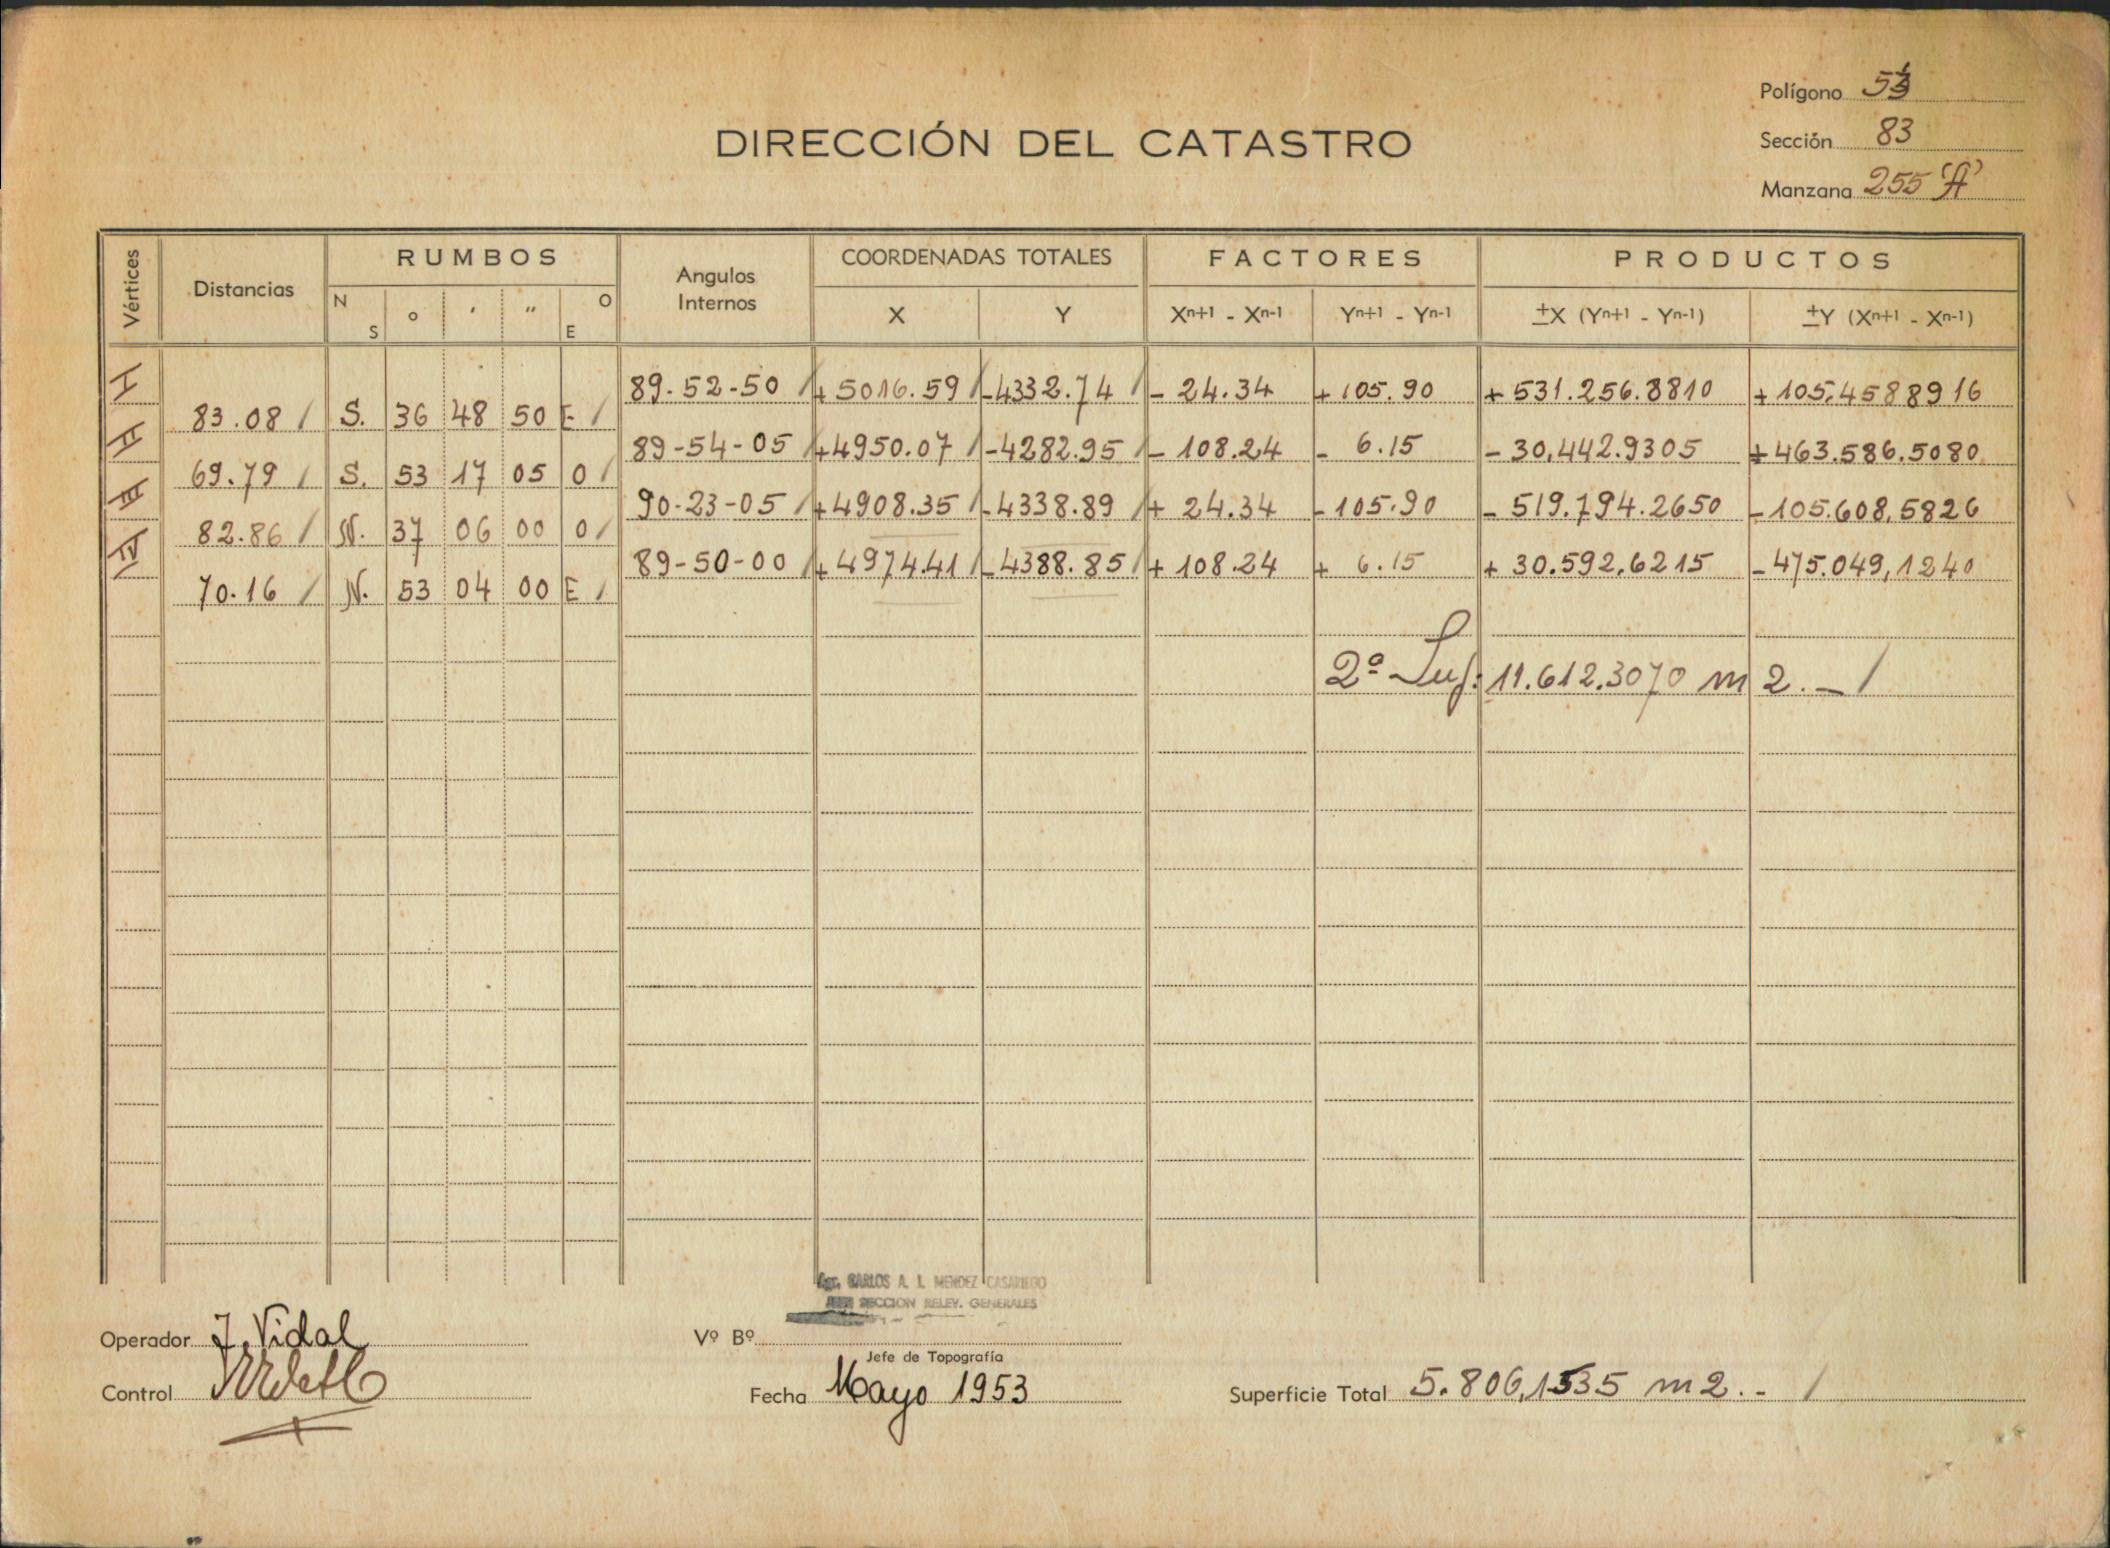 Polígono 51
DIRECCIÓN DEL CATASTRO
Sección 83
Manzana 255 "A"
Vértices Distancias RUMBOS Angulos Internos COORDENADAS TOTALES FACTORES PRODUCTOS
N S o ' " O E X Y Xn+1 - Xn-1 Yn+1 - Yn-1 ±X (Yn+1 - Yn-1) ±Y (Xn+1 - Xn-1)
I 89-52-50 +5016.59 -4332.74 - 24.34 +105.90 +531.256.8810 +105.4588916
83.08 S. 36 48 50 E
II 89-54-05 +4950.07 -4282.95 - 108.24 - 6.15 -30,442.9305 +463.586.5080
69.79 S. 53 17 05 O
III 90-23-05 +4908.35 -4338.89 + 24.34 -105.90 -519.794.2650 -105.608,5826
82.86 N. 37 06 00 O
IV 89-50-00 +4974.41 -4388.85 +108.24 + 6.15 +30.592,6215 -475.049,1240
70.16 N. 53 04 00 E
2ª Sup: 11.612.3070 m2.-
Agr. CARLOS A. I. MENDEZ CASARIEGO
JEFE SECCION RELEV. GENERALES
Operador J. Vidal
Vº Bº
Jefe de Topografía
Control
Fecha Mayo 1953
Superficie Total 5.806,1535 m2.-